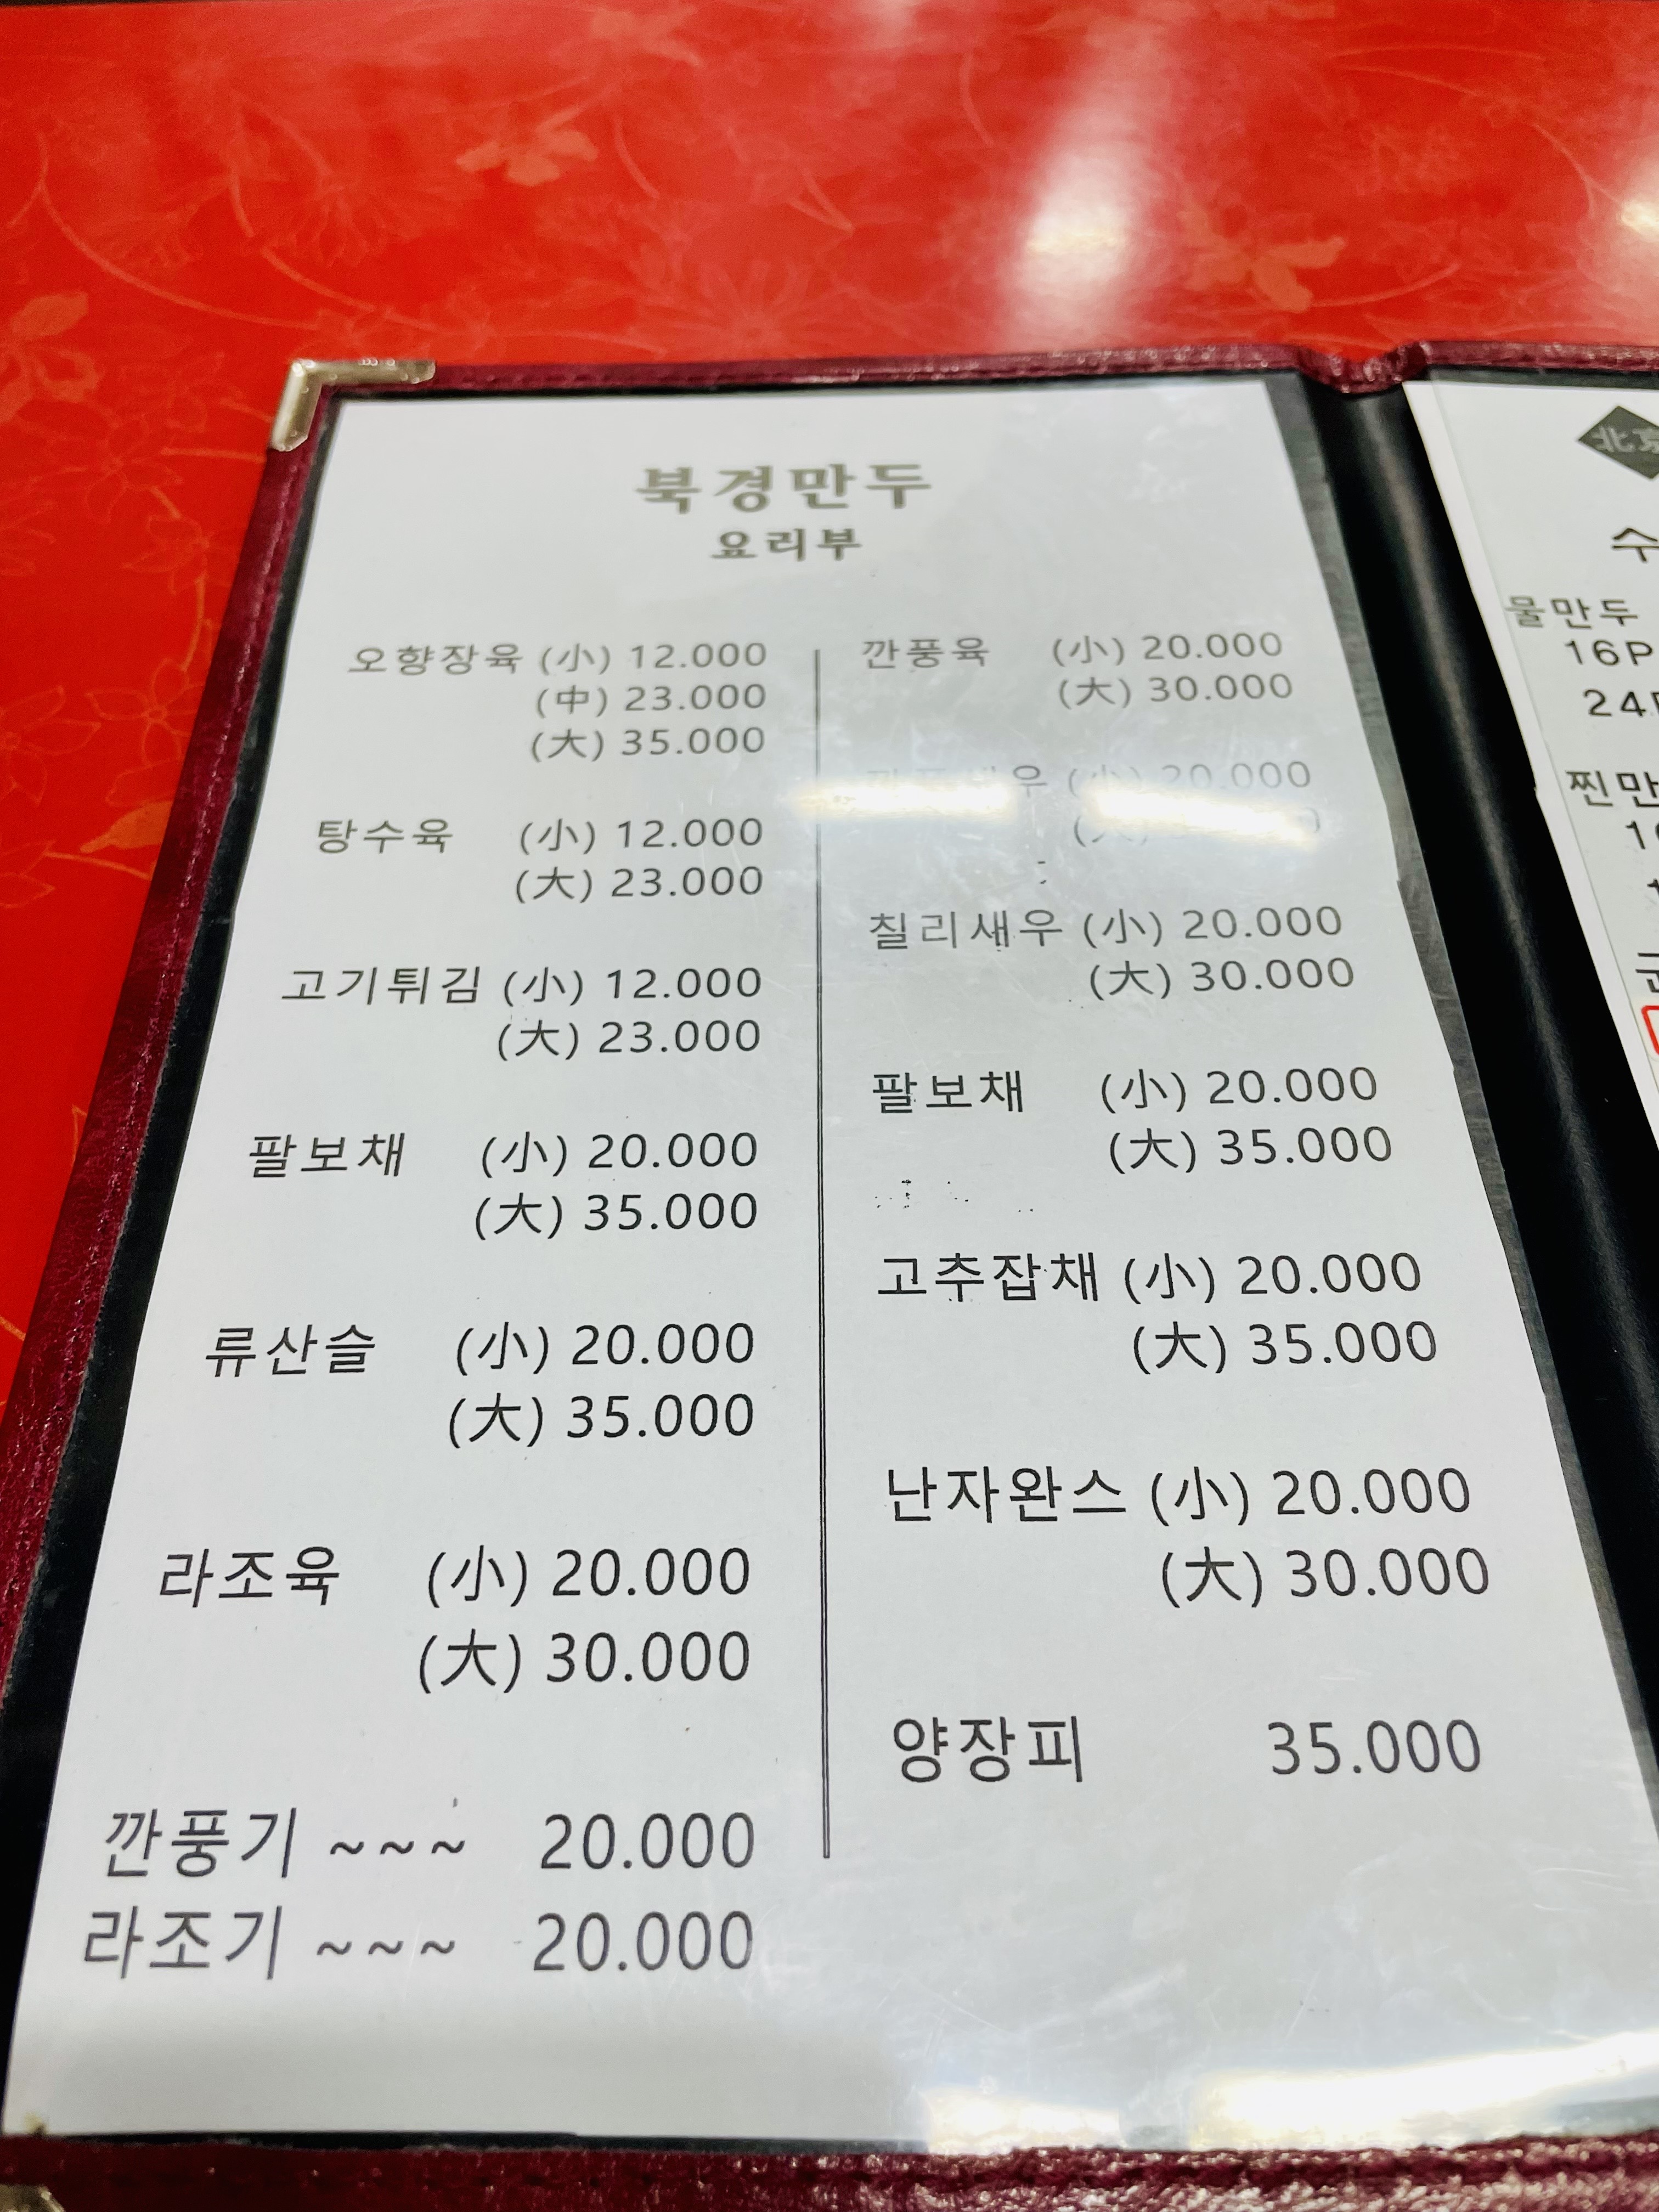 북경만두
요리부
오향장육 (小) 12.000
(中) 23.000
(大) 35.000
탕수육 (小) 12.000
(大) 23.000
고기튀김 (小) 12.000
(大) 23.000
팔보채 (小) 20.000
(大) 35.000
류산슬 (小) 20.000
(大) 35.000
라조육 (小) 20.000
(大) 30.000
깐풍기 ~~~ 20.000
라조기 ~~~ 20.000
깐풍육 (小) 20.000
(大) 30.000
(小) 20.000
(大)
칠리새우 (小) 20.000
(大) 30.000
팔보채 (小) 20.000
(大) 35.000
고추잡채 (小) 20.000
(大) 35.000
난자완스 (小) 20.000
(大) 30.000
양장피 35.000
수
물만두
16P
24
찐만